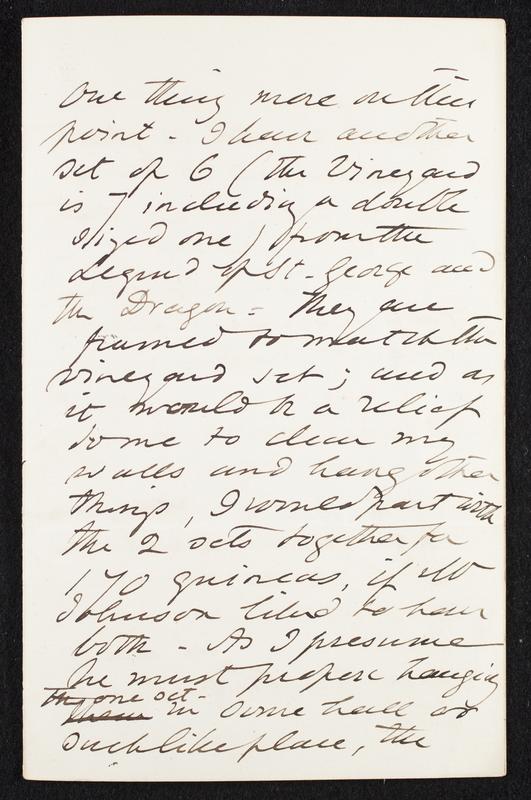 One thing more on this
point - I have another
set of 6 (the Vineyard
is 7 including a double
sized one) from the
Legend of St. George and
the Dragon - They are
framed to match the
vineyard set; and as
it would be a relief
to me to clear my
walls and hang other
things, I would part with
the 2 sets together for
170 guineas, if Mr
Johnson liked to have
both - As I presume
he must propose hanging
the one set -
them in some hall or
suchlike place, the